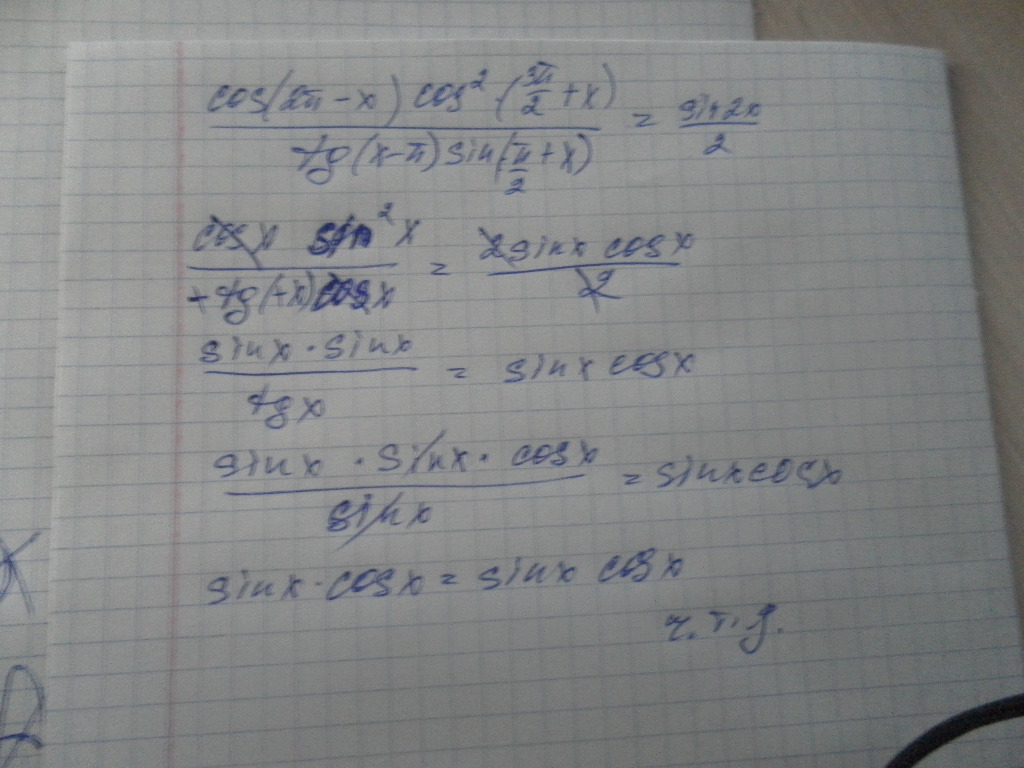 cos(2π-x) cos² · (3π/2 + x) / tg(x-π) sin(π/2 + x) = sin2x / 2
cosx sin²x / + tg(+x) cosx = 2sinx cosx / 2
sinx · sinx / tgx = sinx cosx
sinx · sinx · cosx / sinx = sinxcosx
sinx · cosx = sinx cosx
ч.т.д.